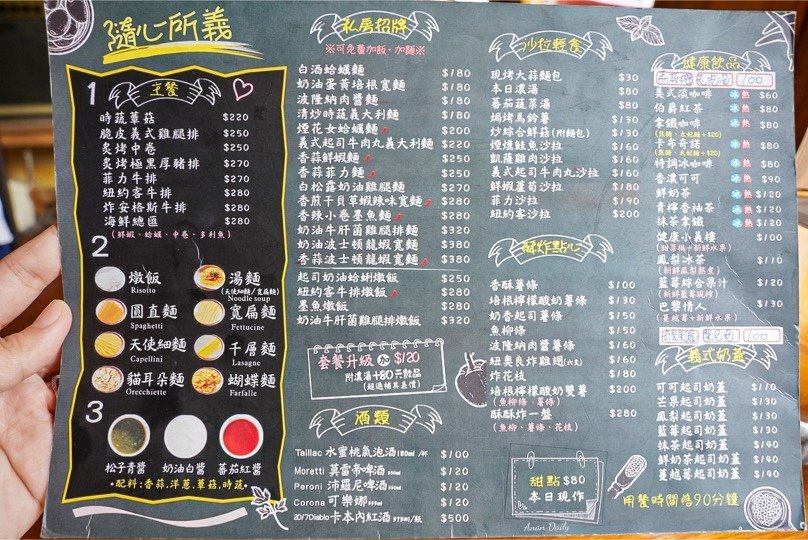 隨心所義
1 主餐
時蔬蕈菇 $220
脆皮義式雞腿排 $250
炙烤中卷 $250
炙烤極黑厚豬排 $270
菲力牛排 $270
紐約客牛排 $280
炸安格斯牛排 $280
海鮮總匯 $280
(鮮蝦、蛤蠣、中卷、多利魚)
2
燉飯
Risotto
湯麵
(天使細麵/寬扁麵)
Noodle soup
圓直麵
Spaghetti
寬扁麵
Fettucine
天使細麵
Capellini
千層麵
Lasagne
貓耳朵麵
Orecchiette
蝴蝶麵
Farfalle
3
松子青醬
奶油白醬
蕃茄紅醬
•配料:香蒜.洋蔥.蕈菇.時蔬•
私房招牌
※可免費加飯、加麵※
白酒蛤蠣麵 $180
奶油蛋黃培根寬麵 $180
波隆納肉醬麵 $180
清炒時蔬義大利麵 $180
煙花女蛤蠣麵 $200
義式起司牛肉丸義大利麵 $220
香蒜鮮蝦麵 $250
香蒜菲力麵 $250
白松露奶油雞腿麵 $270
香煎干貝草蝦辣味寬麵 $280
香辣小卷墨魚麵 $280
奶油牛肝菌雞腿麵 $320
奶油波士頓龍蝦寬麵 $380
香蒜波士頓龍蝦麵 $380
起司奶油蛤蜊燉飯 $250
紐約客牛排燉飯 $280
墨魚燉飯 $280
奶油牛肝菌雞腿排燉飯 $320
套餐升級 加 $120
附濃湯+60元飲品
(超過補差價)
酒類
Taillac 水蜜桃氣泡酒 $100
Moretti 莫雷蒂啤酒 $120
Peroni 沛羅尼啤酒 $120
Corona 可樂娜 $120
20/7Diablo 卡本內紅酒 375ml/瓶 $500
沙拉輕食
現烤大蒜麵包 $30
本日濃湯 $80
蕃茄蔬菜湯 $80
焗烤馬鈴薯 $130
炒綜合鮮菇(附麵包) $130
煙燻鮭魚沙拉 $160
凱薩雞肉沙拉 $160
義式起司牛肉丸沙拉 $160
鮮蝦蘆筍沙拉 $180
菲力沙拉 $190
紐約客沙拉 $200
酥炸點心
香酥薯條 $100
培根檸檬酸奶薯條 $130
奶香起司薯條 $150
魚柳條 $150
波隆納肉醬薯條 $160
紐奧良炸雞翅(六支) $160
炸花枝 $180
培根檸檬酸奶雙薯 $200
(魚柳條、薯條)
酥酥炸一盤 $280
(魚柳、薯條、花枝)
甜點 $80
本日現作
Anan Daily
健康飲品
100
美式淡咖啡 冰 熱 $60
伯爵紅茶 冰 熱 $80
拿鐵咖啡 冰 熱 $80
(焦糖、太妃糖+$20)
卡布奇諾 冰 熱 $80
(焦糖、太妃糖+$20)
特調冰咖啡 $80
香濃可可 $90
鮮奶茶 冰 熱 $120
青檸香柚茶 冰 熱 $120
抹茶拿鐵 冰 熱 $120
健康小義樓 $100
(甜菜根+新鮮水果)
鳳梨冰茶 $110
(新鮮鳳梨熬煮)
藍莓綜合果汁 $120
巴黎情人 $130
(蔓越莓+新鮮水果)
100
義式奶蓋
可可起司奶蓋 $110
芒果起司奶蓋 $130
鳳梨起司奶蓋 $130
藍莓起司奶蓋 $130
抹茶起司奶蓋 $140
鮮奶茶起司奶蓋 $140
蔓越莓起司奶蓋 $140
用餐時間為90分鐘